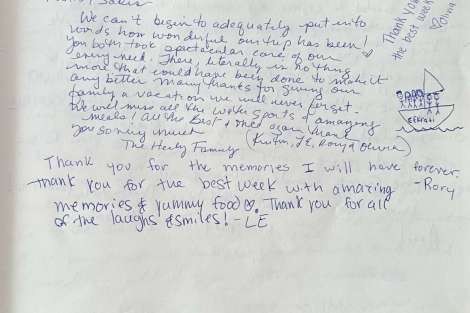 We can't begin to adequately put into
words how wonderful our trip has been!
You both took spectacular care of our
every need. There, literally, is nothing
more that could have been done to make it
any better. Many thanks for giving our
family a vacation we will never forget.
We will miss all the water sports & amazing
meals! All the best & once again thank
you so very much
The Family
Olivia)
Thank you for the memories I will have forever.
-Rory
Thank you for the best week with amazing
memories & yummy food. Thank you for all
of the laughs & smiles! -LE
Thank you
the best week
Olivia